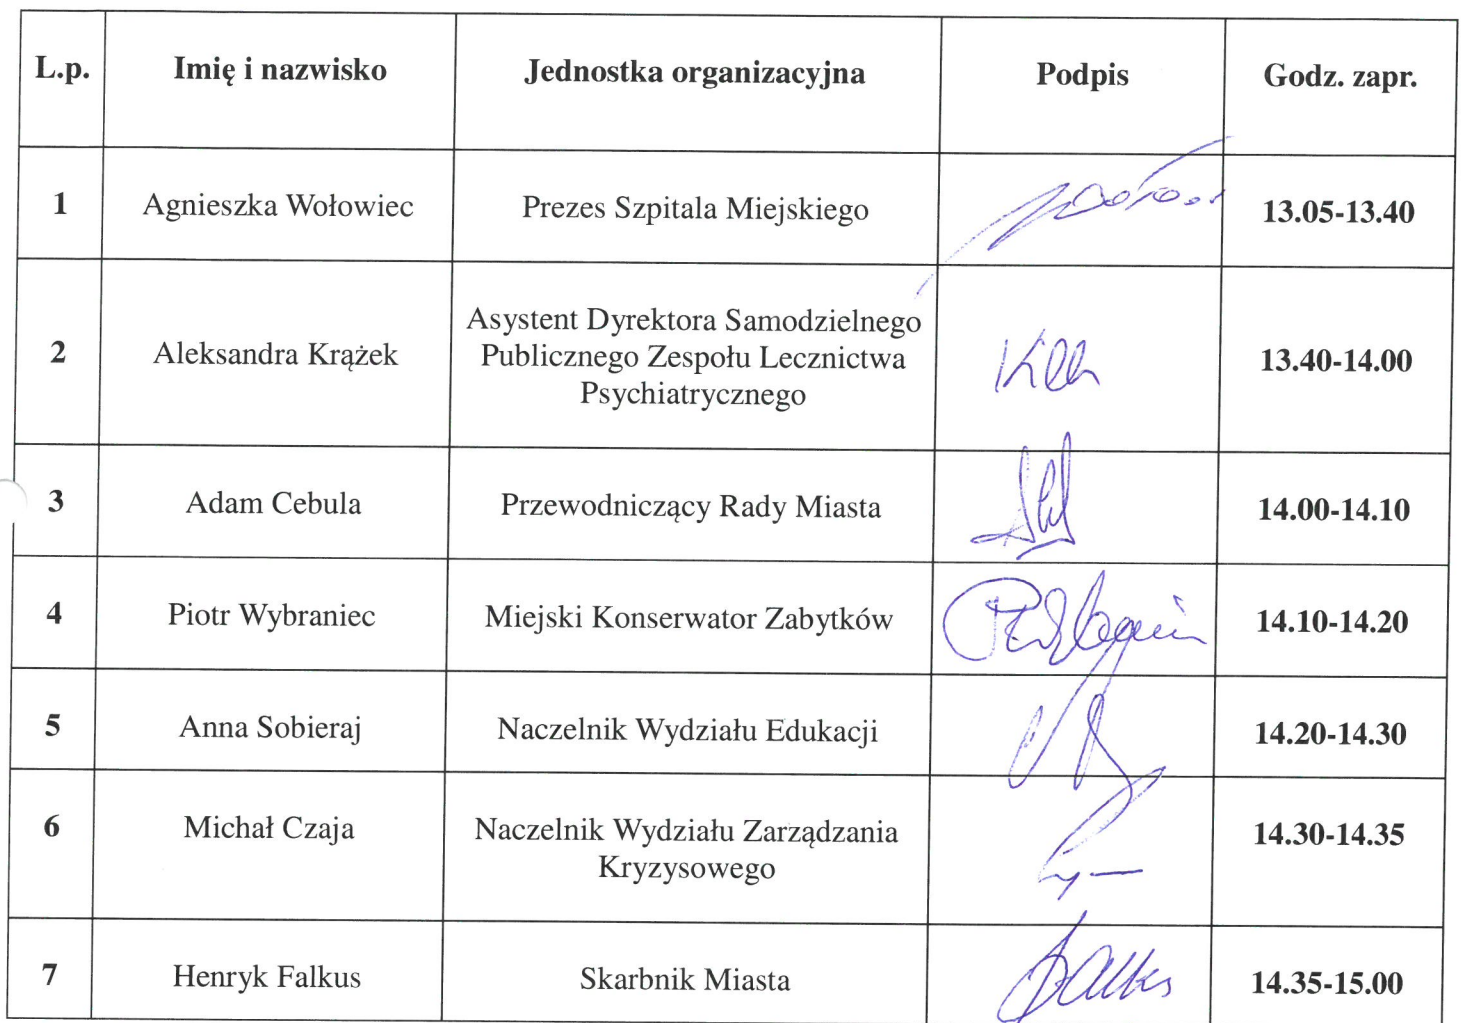 L.p. Imię i nazwisko Jednostka organizacyjna Podpis Godz. zapr.
1 Agnieszka Wołowiec Prezes Szpitala Miejskiego 13.05-13.40
2 Aleksandra Krążek Asystent Dyrektora Samodzielnego
Publicznego Zespołu Lecznictwa
Psychiatrycznego 13.40-14.00
3 Adam Cebula Przewodniczący Rady Miasta 14.00-14.10
4 Piotr Wybraniec Miejski Konserwator Zabytków 14.10-14.20
5 Anna Sobieraj Naczelnik Wydziału Edukacji 14.20-14.30
6 Michał Czaja Naczelnik Wydziału Zarządzania
Kryzysowego 14.30-14.35
7 Henryk Falkus Skarbnik Miasta 14.35-15.00